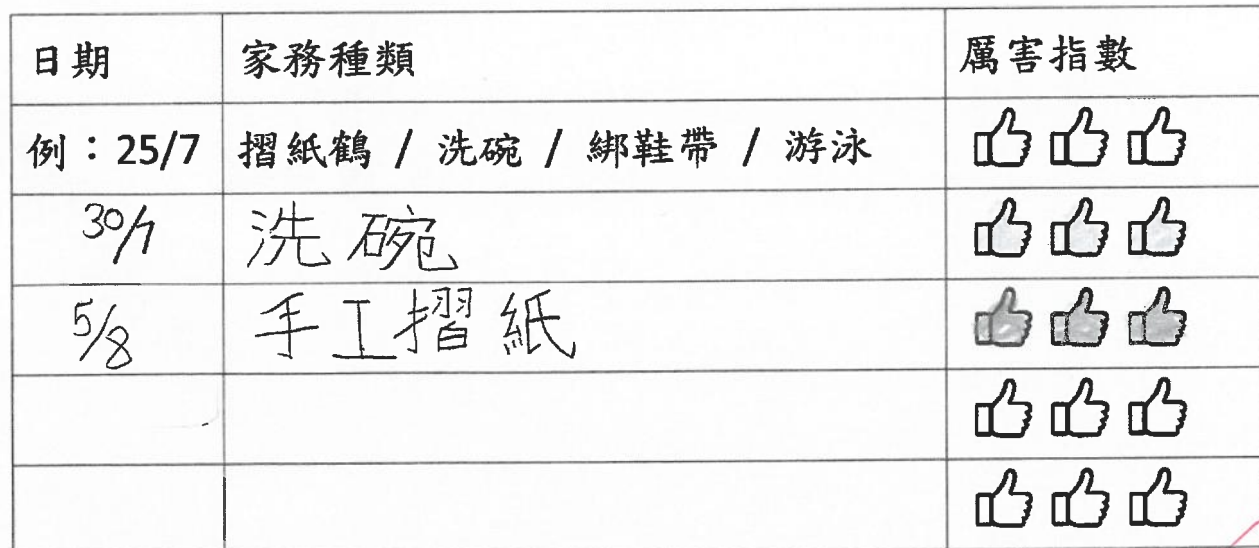 日期 家務種類 厲害指數
例：25/7 摺紙鶴 / 洗碗 / 綁鞋帶 / 游泳
30/7 洗碗
5/8 手工摺紙